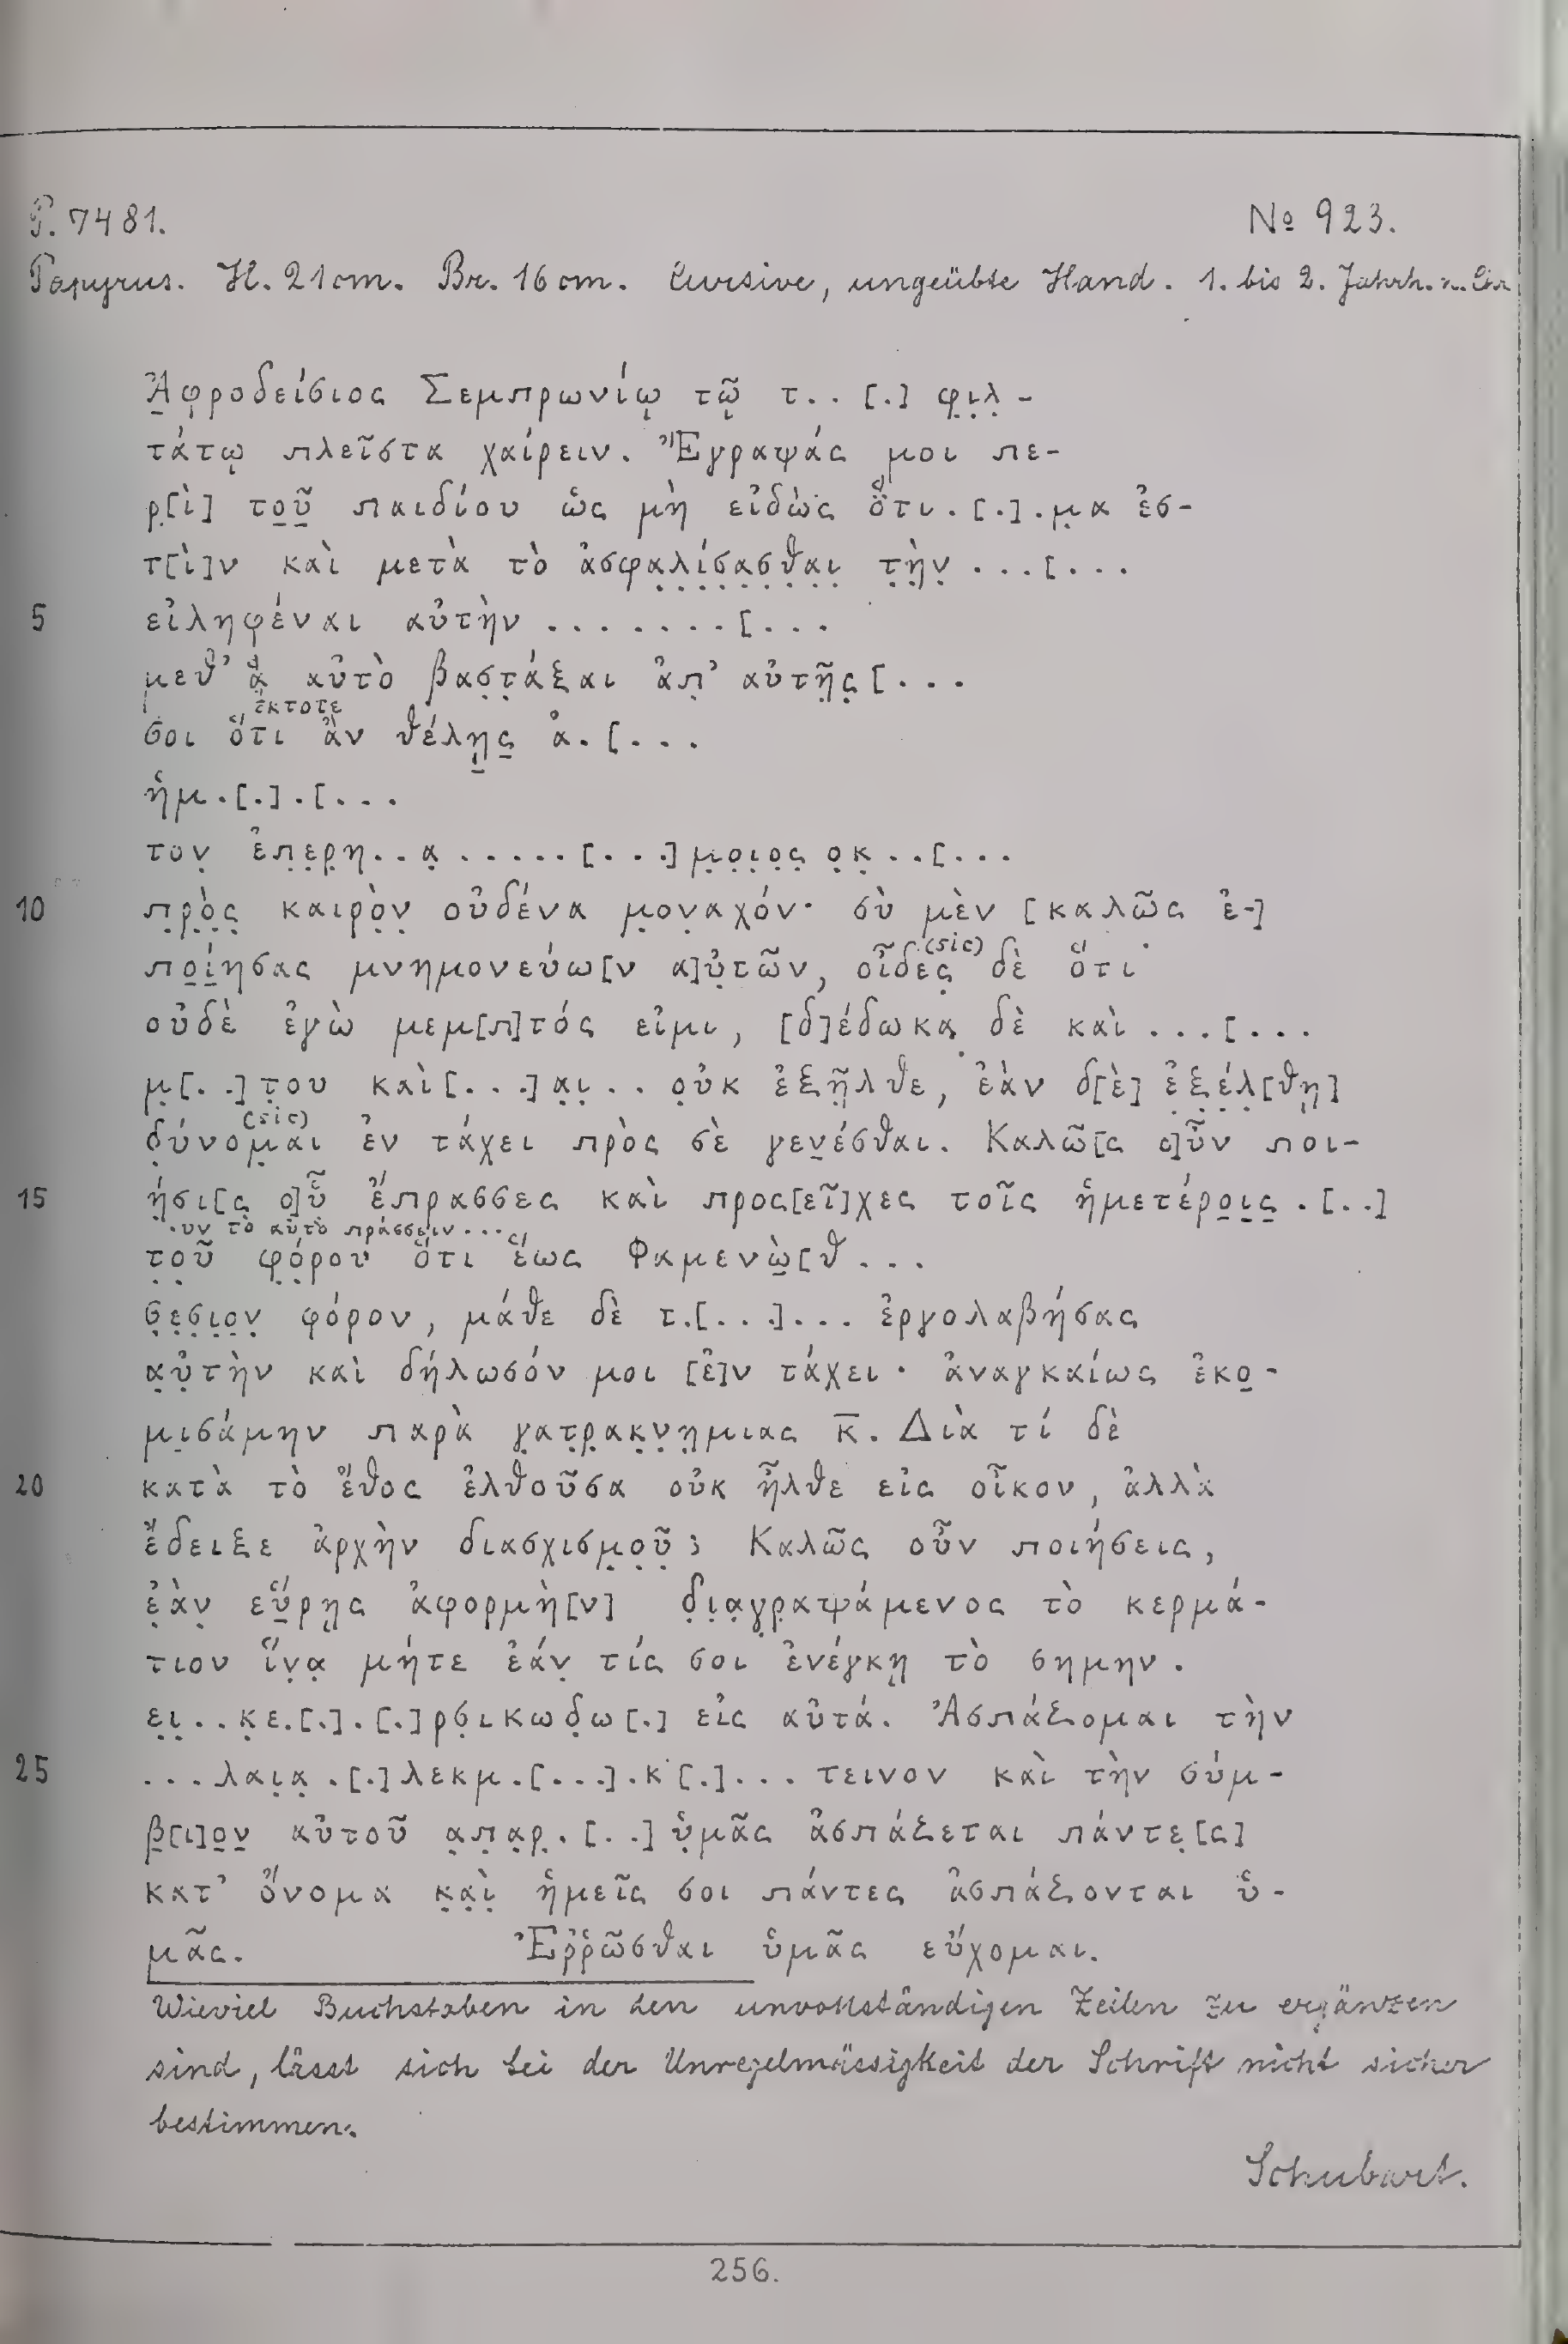 P. 7481. № 923.
Papyrus. H. 21 cm. Br. 16 cm. Cursive, ungeübte Hand. 1. bis 2. Jahrh. n. Chr
Ἀ̣φροδείσιος Σεμπρωνίῳ τῷ τ.. [.] φι̣λ̣-
τάτῳ πλεῖστα χαίρειν. Ἔγραψάς μοι πε-
ρ̣[ὶ] το̣ῦ̣ παιδίου ὡς μὴ εἰδὼς ὅτι.[.].μ̣α ἐσ-
τ[ὶ]ν καὶ μετὰ τὸ ἀσφα̣λ̣ί̣σ̣α̣σ̣θ̣α̣ι̣ τ̣ὴ̣ν̣ ...[...
5 εἰληφέναι αὐτὴν .......[...
μεθ’ ἃ αὐτὸ βασ̣τ̣άξαι ἀπ̣’ αὐτῆ̣ς̣[...
ἔκτοτε
σοι ὅτι ἂν θέλῃ̣ς̣ ἀ.[...
ἡμ.[.].[...
τον̣ ἐπ̣ε̣ρ̣η..α̣ .....[...]μ̣ο̣ι̣ο̣ς̣ ο̣κ̣..[...
10 π̣ρ̣ὸ̣ς̣ καιρὸ̣ν̣ οὐδένα μ̣ον̣αχόν· σὺ μὲν [καλῶς ἐ-]
(sic)
πο̣ί̣ησας μνημονεύω[ν α]ὐ̣τῶν, οἶδες̣ δὲ ὅτι
οὐδὲ ἐγὼ μεμ[π]τός εἰμι, [δ]έδωκα̣ δὲ καὶ ...[...
μ̣[..]τ̣ου καὶ[...]α̣ι̣.. ο̣ὐκ ἐξῆ̣λθε, ἐὰν δ[ὲ] ἐ̣ξ̣έ̣λ̣[θῃ]
(sic)
δ̣ύνομ̣αι ἐν τάχει πρὸς σὲ γεν̣έσθαι. Καλῶ[ς ο]ὖν ποι-
15 ήσι[ς̣ ο]ὗ ἔπρασσες καὶ προς[εῖ]χες τοῖς ἡμετέρο̣ι̣ς̣ .[..]
.υν τὸ αὐτὸ πράσσειν...
τ̣ο̣ῦ φ̣ό̣ρου ὅτι ἕως Φαμενὼ̣[θ...
σ̣ε̣σ̣ι̣ο̣ν̣ φόρον, μάθε δὲ τ.[...]... ἐργολαβήσας
α̣ὐ̣τὴν καὶ δήλωσόν μοι [ἐ]ν τάχει· ἀναγκαίως ἐκο̣-
μι̣σάμην παρὰ γ̣ατ̣ρ̣α̣κ̣ν̣η̣μιας κ̅. Διὰ τί δὲ
20 κατὰ τὸ ἔθος ἐλθοῦσα οὐκ ἦλθε εἰς οἶκον, ἀλλὰ
ἔδειξε ἀρχὴν διασχισμ̣ο̣ῦ̣; Καλῶς οὖν ποιήσεις,
ἐ̣ὰν̣ εὕ̣ρῃς ἀφορμὴ[ν] δ̣ι̣α̣γ̣ρ̣αψάμενος τὸ κερμά-
τιον ἵν̣α̣ μήτε ἐάν̣ τίς σοι ἐνέγκῃ τὸ σημην.
ε̣ι̣..κ̣ε.[.].[.]ρσ̣ικωδ̣ω[.] εἰς αὐτά. Ἀσπάζομαι τὴν
25 ...λαι̣α̣.[.]λεκμ.[...].κ[.]... τεινον καὶ τὴν σύμ-
β̣[ι]ο̣ν̣ αὐτοῦ α̣π̣α̣ρ̣.[..] ὑ̣μᾶς ἀσπάζεται πάντε̣[ς]
κατ’ ὄνομα κ̣α̣ὶ̣ ἡμεῖς σοι πάντες ἀσπάζονται ὑ-
μᾶς. Ἐῤῥῶσθαι ὑμᾶς εὔχομαι.
Wieviel Buchstaben in den unvollständigen Zeilen zu ergänzen
sind, lässt sich bei der Unregelmässigkeit der Schrift nicht sicher
bestimmen.
Schubart.
256.